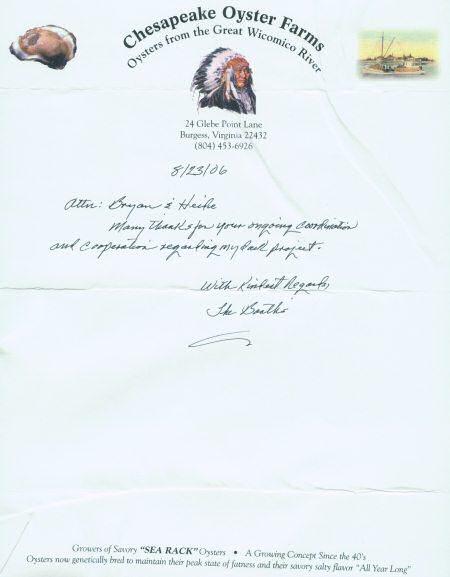 Chesapeake Oyster Farms
Oysters from the Great Wicomico River
24 Glebe Point Lane
Burgess, Virginia 22432
(804) 453-6926
8/23/06
Attn: Bryan & Heike
Many thanks for your ongoing coordination
and cooperation regarding my project.
With Kindest Regards,
The
Growers of Savory "SEA RACK" Oysters • A Growing Concept Since the 40's
Oysters now genetically bred to maintain their peak state of fatness and their savory salty flavor "All Year Long"